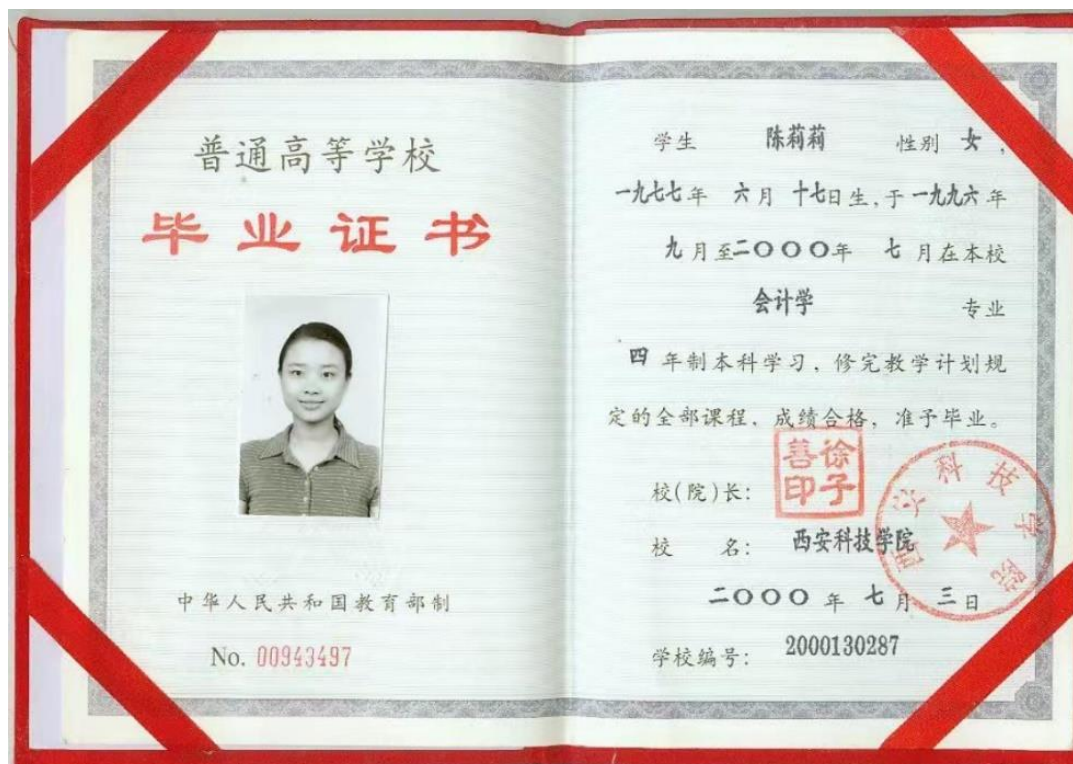 普通高等学校
毕业证书
中华人民共和国教育部制
No. 00943497
学生 陈莉莉 性别 女,
一九七七年 六月 十七日生,于一九九六年
九月至二〇〇〇年 七月在本校
会计学 专业
四年制本科学习,修完教学计划规
定的全部课程,成绩合格,准予毕业。
徐子善印
校(院)长:
校 名: 西安科技学院
西安科技学院
二〇〇〇年 七月 三日
学校编号: 2000130287